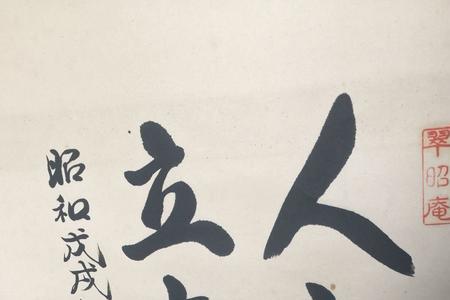 翠昭庵
人
立
昭和戊戌